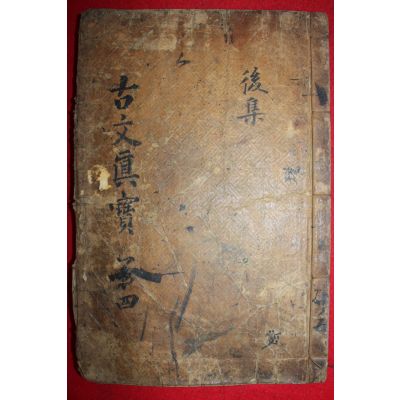 後集
古文眞寶 卷四